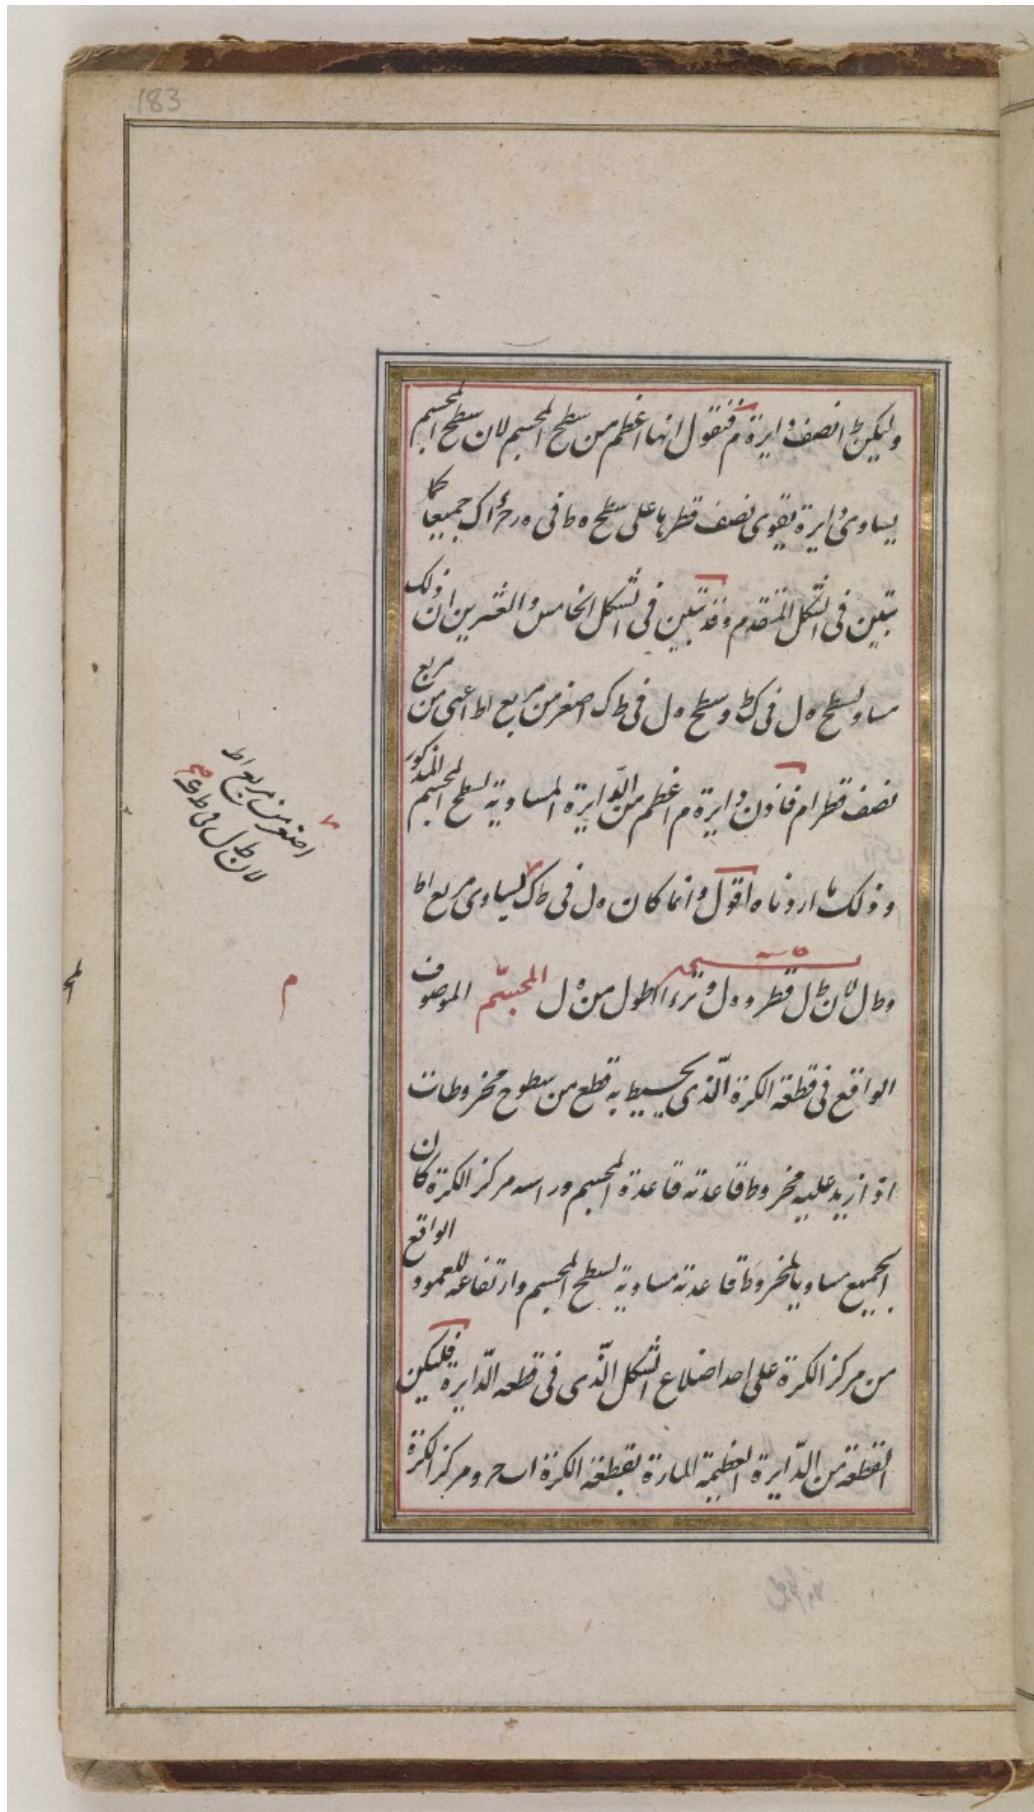 183
وليكن ط ا نصف دايرة م فنقول انها اعظم من سطح المجسم لان سطح المجسم
يساوى دايرة يقوى نصف قطرها على سطح ه ط فى ه ر ح ا ك جميعا كما
تبين فى الشكل المتقدم وقد تبين فى الشكل الخامس والعشرين ان ذلك
مساو لسطح ه ل فى ك ط وسطح ه ل فى ط ك اصغر من مربع ا ط اعنى من مربع
نصف قطر ا م فاذن دايرة م اعظم من الدّايرة المساوية لسطح المجسم المذكور
وذلك ما اردناه اقول وانما كان ه ل فى ط ك يساوى مربع ا ط
اصغر من مربع ا ط
لان ط ل فى ط ك صح
وط ل لان ط ل قطر و ه ل وتر ا ط اطول من ه ل المجسّم الموصوف
م
الواقع فى قطعة الكرة الّذى يحيط به قطع من سطوح مخروطات
اذا زيد عليه مخروط قاعدته قاعدة المجسم وراسه مركز الكرة كان
الجميع مساويا لمخروط قاعدته مساوية لسطح المجسم وارتفاعه للعمود الواقع
من مركز الكرة على احد اضلاع الشكل الّذى فى قطعه الدّايرة فليكن
القطعة من الدّايرة العظيمة المارة بقطعة الكرة ا ب ح ومركز الكرة